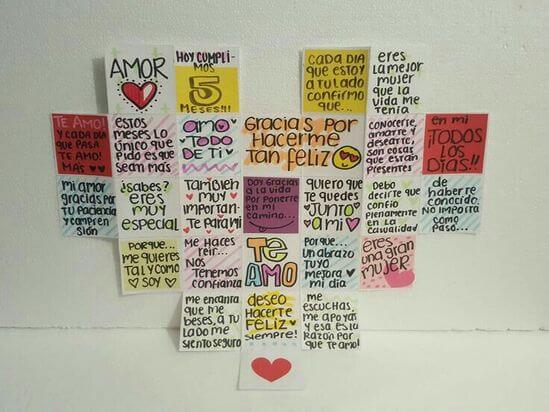 AMOR
HOY CUMPLI-
MOS
5
MESES!!!
CADA DIA
que ESTOY
a TU LADO
CONFIRMO
QUE...
eres
La MEJOR
MUJER
que La
VIDA Me
Tenia
TE AMO!
Y CADA DIA
que PASA
TE AMO!
MAS
ESTOS
MESES LO
ÚNICO QUE
PIDO ES QUE
SEAN MÁS
amo
TODO
De Ti
Gracias POR
HACERME
TAN FELIZ
CONOCERTE,
AMARTE Y
DESEARTE,
SON COSAS
QUE ESTARÁN
PRESENTES
en mi
¡TODOS
LOS
DÍAS!!
mi amor
gracias por
TU Paciencia
Y compren
sión
¿sabes?
eres
MUY
especial
También
eres MUY
IMPORTAN-
Te Para mi
DOY GRACIAS
a La VIDA
POR PONERTE
en mi
camino...
QUIERO QUE
Te quedes
JUNTO
a mi
Debo
decirte que
confío
Plenamente
en la
casualidad
de
haberte
conocido.
NO IMPORTA
COMO
PASO...
PORQUE...
me quieres
Tal y como
SOY
Me Haces
reir...
NOS
Tenemos
confianza
TE
AMO
Porque...
un abrazo
TUYO
mejora
mi dia
eres
una gran
MUJER
me encanta
que me
beses, a TU
Lado me
siento seguro
deseo
HACERTE
FELIZ
siempre!
me
escuchas,
me apoyas
y esa es la
razón por
que Te amo!